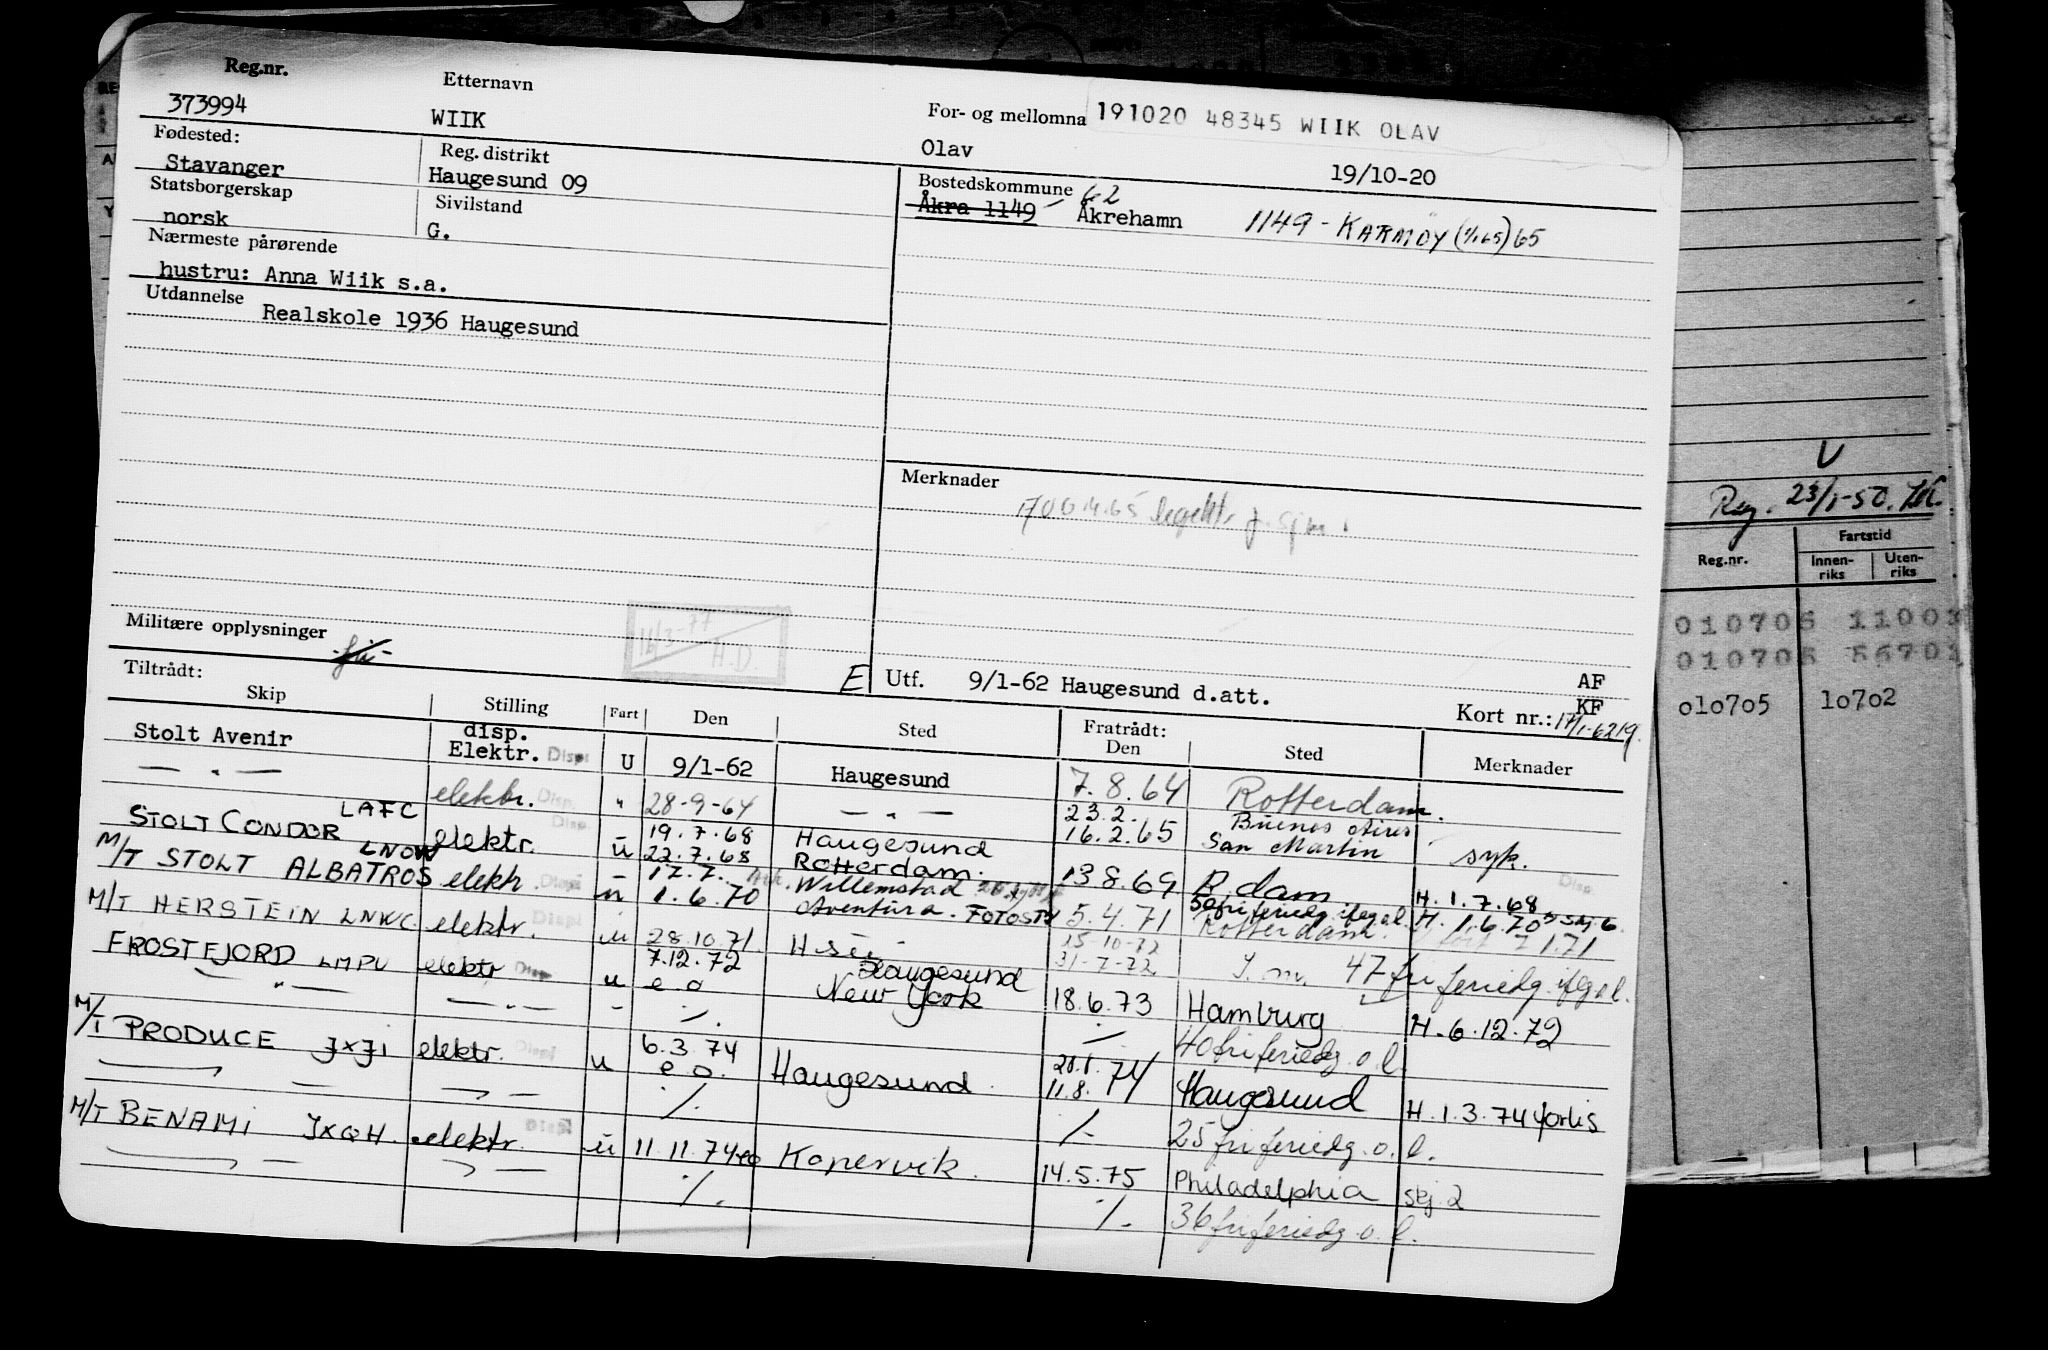 Reg.nr. Etternavn For- og mellomna 191020 48345 WIIK OLAV
373994 WIIK Olav 19/10-20
Fødested: Reg. distrikt Bostedskommune 62
Stavanger Haugesund 09 Åkra 1149 Åkrehamn 1149 - KARMØY (1/1 65) 65
Statsborgerskap Sivilstand
norsk G.
Nærmeste pårørende
hustru: Anna Wiik s.a.
Utdannelse
Realskole 1936 Haugesund
Merknader
Militære opplysninger
16/3-77
H.D.
Tiltrådt: E Utf. 9/1-62 Haugesund d.att. AF
KF
Kort nr.: 17/1-62 19.
Skip Stilling Fart Den Sted Fratrådt: Den Sted Merknader
Stolt Avenir disp. Elektr. Disp. U 9/1-62 Haugesund 7.8.64 Rotterdam.
— " — elektr. Disp. " 28-9-64 — " — 23.2. Buenos Aires
16.2.65 San Martin syk.
STOLT CONDOR LAFC elektr. Disp. u 19.7.68 Haugesund
22.7.68 Rotterdam. 13.8.69 R.dam H.1.7.68
M/T STOLT ALBATROS LNOW elektr. Disp. u 17.7. Willemstad
1.6.70 Aventura. 5.4.71 Rotterdam H. 1.6.70
M/T HERSTEIN LNWC. elektr. Disp. u 28.10.71 15-10-72
31-7-72 47 fri feriedg. ifgol.
FROSTFJORD LMPV elektr Disp u 7.12.72 Haugesund
e o New York 18.6.73 Hamburg H. 6.12.72
— " — — " — - ./. ./. 40 fri feriedg. o.l.
M/T PRODUCE JXJI elektr. Disp u 6.3.74
e o. Haugesund. 11.8.74 Haugesund H.1.3.74
./. ./. 25 fri feriedg. o.l.
M/T BENAMI JXQH. elektr. Disp u 11.11.74 eo Kopervik. 14.5.75 Philadelphia Skj. 2
./. ./. 36 fri feriedg. o.l.
V
Reg. 23/1-50.
Reg.nr. Fartstid
Innenriks Utenriks
010705 1100
010705
010705 10702